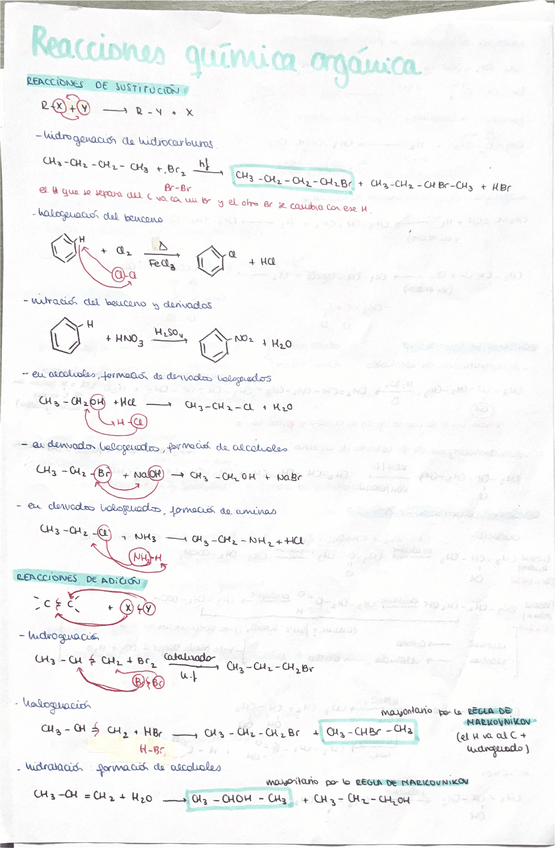 Reacciones química orgánica
REACCIONES DE SUSTITUCIÓN
R-X + Y ⟶ R - Y + X
- hidrogenación de hidrocarburos
CH₃-CH₂-CH₂-CH₃ + Br₂ hf⟶ CH₃-CH₂-CH₂-CH₂Br + CH₃-CH₂-CHBr-CH₃ + HBr
Br-Br
el H que se separa del C va con un Br y el otro Br se cambia con ese H.
- halogenación del benceno
H + Cl₂ Δ⟶ FeCl₃ Cl + HCl
Cl-Cl
- nitración del benceno y derivados
H + HNO₃ H₂SO₄⟶ NO₂ + H₂O
- en alcoholes, formación de derivados halogenados
CH₃-CH₂OH + HCl ⟶ CH₃-CH₂-Cl + H₂O
H-Cl
- en derivados halogenados, formación de alcoholes
CH₃-CH₂-Br + NaOH ⟶ CH₃-CH₂OH + NaBr
- en derivados halogenados, formación de aminas
CH₃-CH₂-Cl + NH₃ ⟶ CH₃-CH₂-NH₂ + HCl
NH₂-H
REACCIONES DE ADICIÓN
C=C + X-Y
- hidrogenación
CH₃-CH=CH₂ + Br₂ catalizador⟶ CH₃-CH₂-CH₂Br
Br-Br
- halogenación
mayoritario por la REGLA DE MARKOVNIKOV
CH₃-CH=CH₂ + HBr ⟶ CH₃-CH₂-CH₂Br + CH₃-CHBr-CH₃
(el H va al C + hidrogenado)
H-Br
- hidratación formación de alcoholes
mayoritario por la REGLA DE MARKOVNIKOV
CH₃-CH=CH₂ + H₂O ⟶ CH₃-CHOH-CH₃ + CH₃-CH₂-CH₂OH